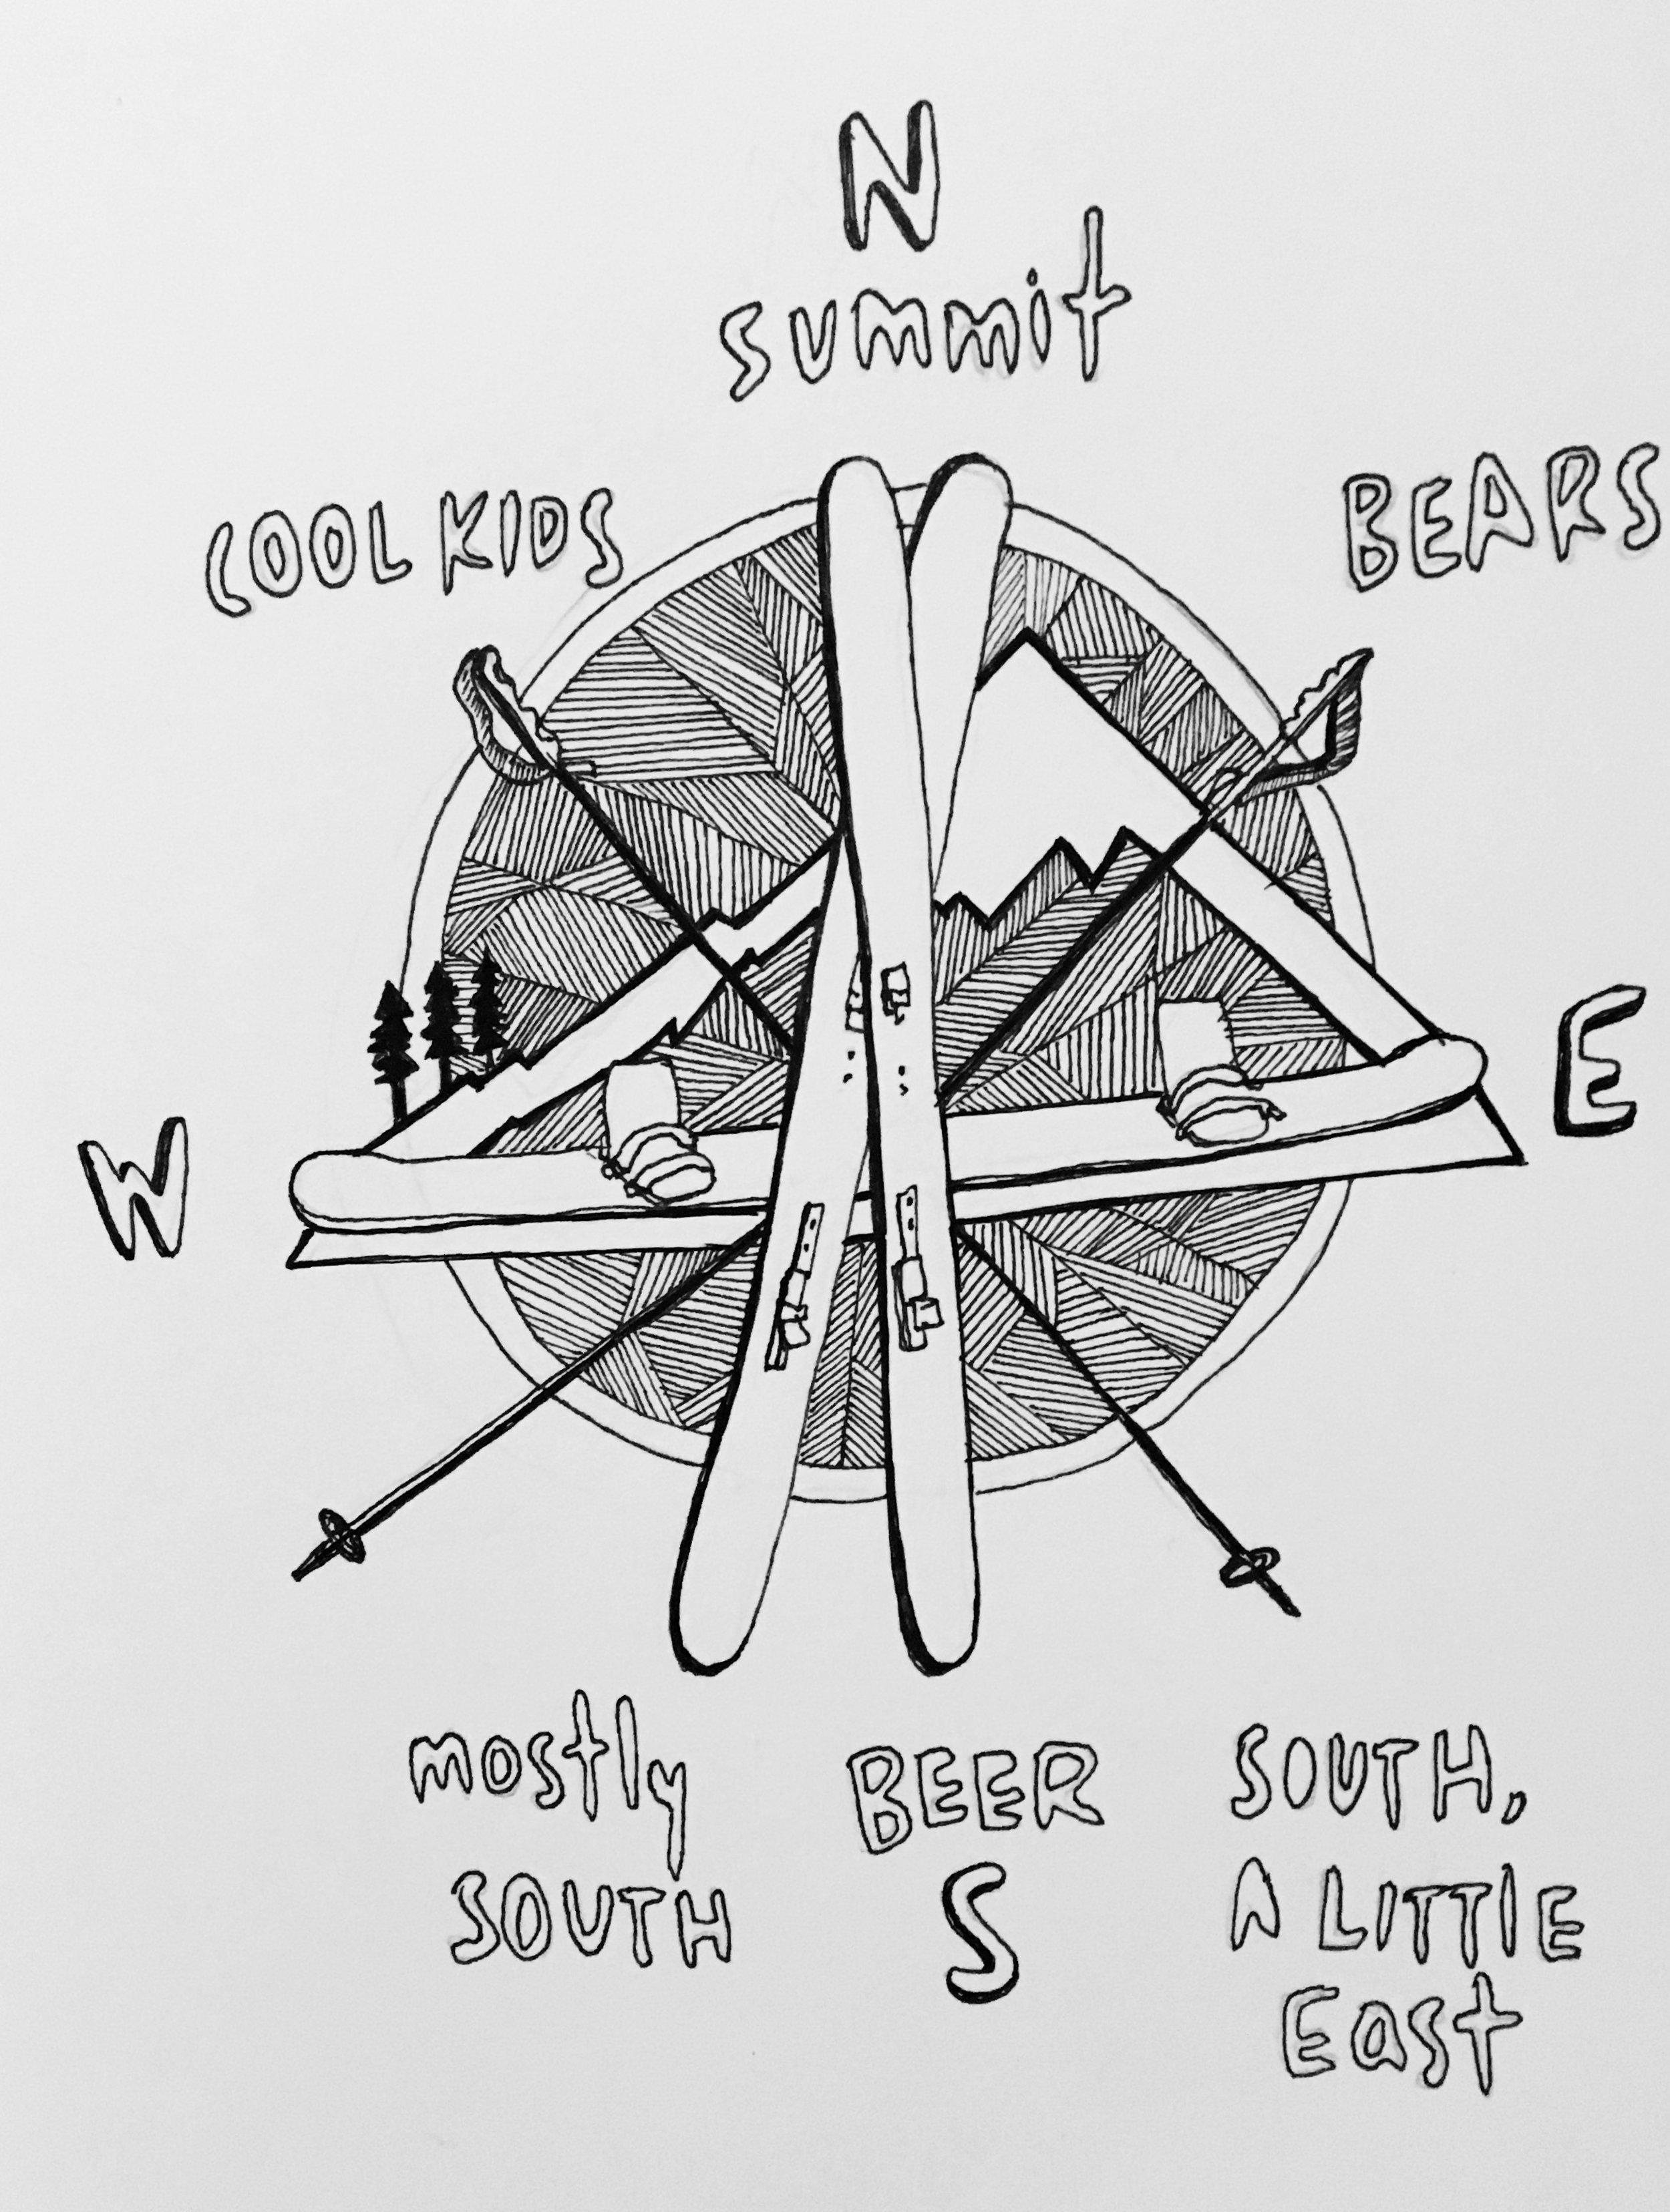 N
summit
COOL KIDS
BEARS
E
W
mostly
SOUTH
BEER
S
SOUTH,
A LITTlE
East